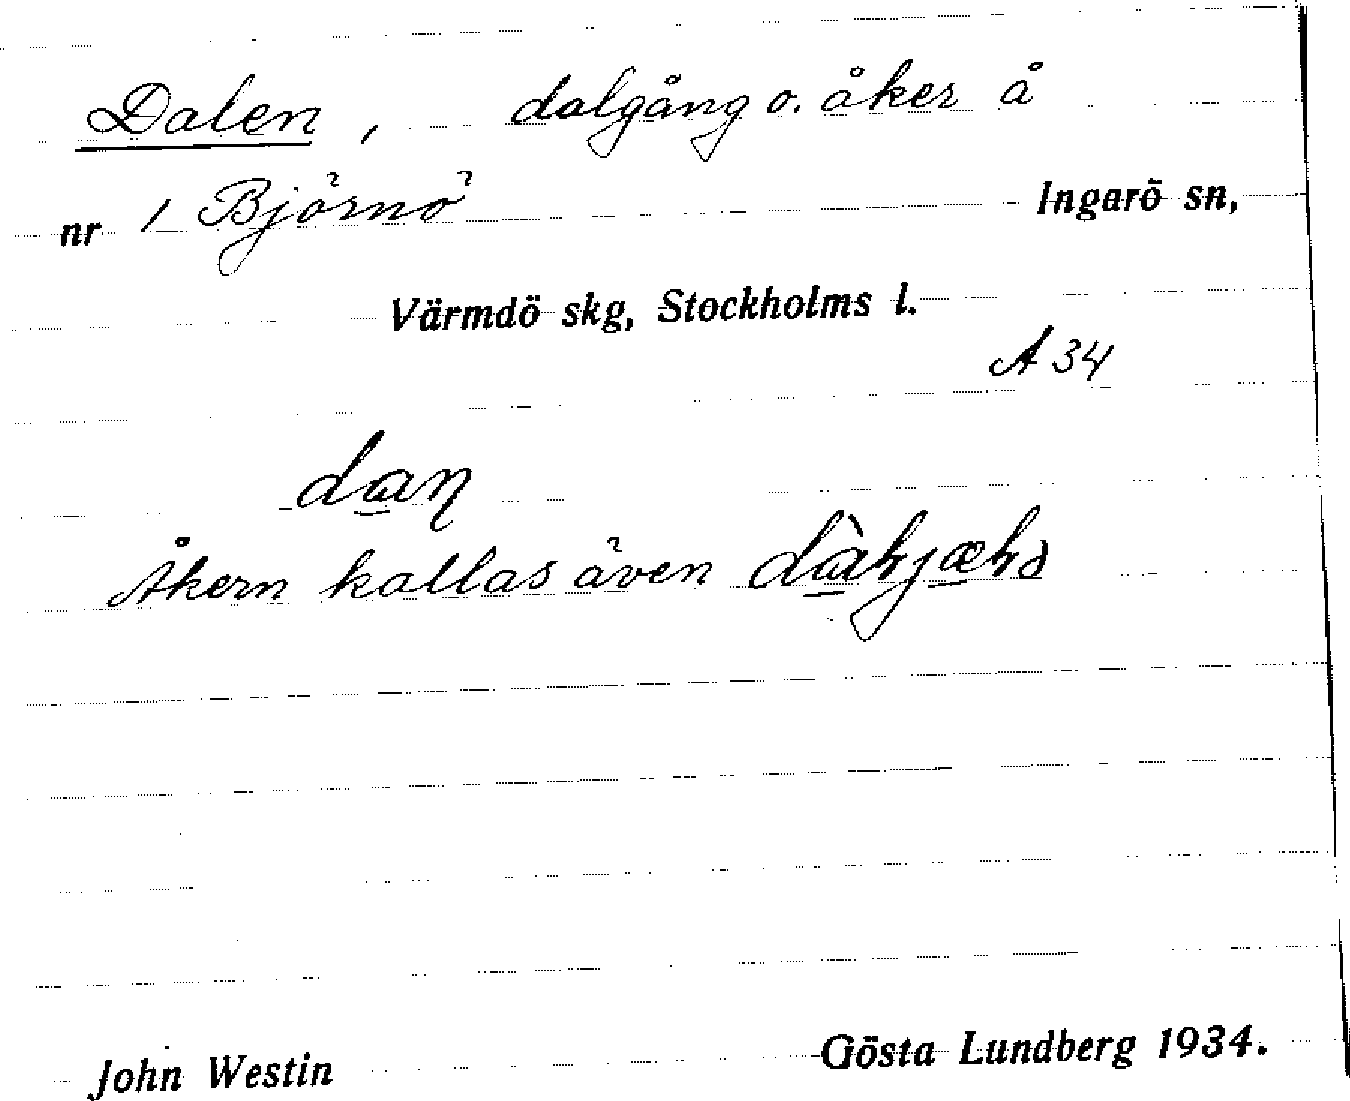 Dalen, dalgång o. åker å
nr 1 Björnö Ingarö sn,
Värmdö skg, Stockholms l.
A 34
Åkern kallas även
John Westin Gösta Lundberg 1934.